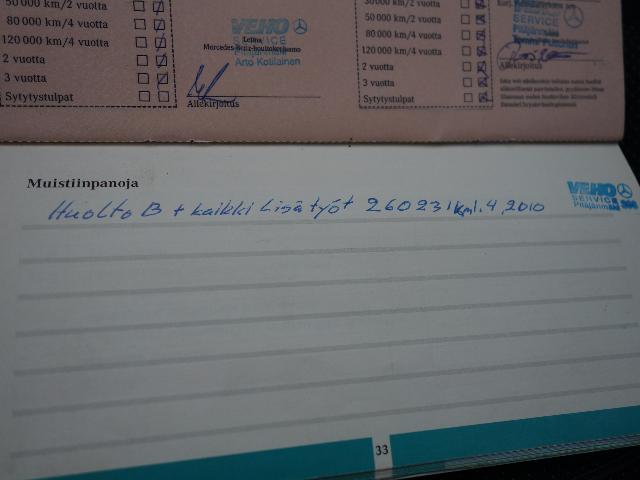 50 000 km/2 vuotta
80 000 km/4 vuotta
120 000 km/4 vuotta
2 vuotta
3 vuotta
Sytytystulpat
VEHO
SERVICE
Leima
Mercedes-Benz-huoltokorjaamo
Pitäjänmäki
Arto Kotilainen
Allekirjoitus
30 000 km/2 vuotta
50 000 km/2 vuotta
80 000 km/4 vuotta
120 000 km/4 vuotta
2 vuotta
3 vuotta
Sytytystulpat
VEHO
SERVICE
Pitäjänmäki
Allekirjoitus
Muistiinpanoja
Huolto B + kaikki Lisätyöt 260231km 1.4.2010
VEHO
SERVICE
Pitäjänmäki
33